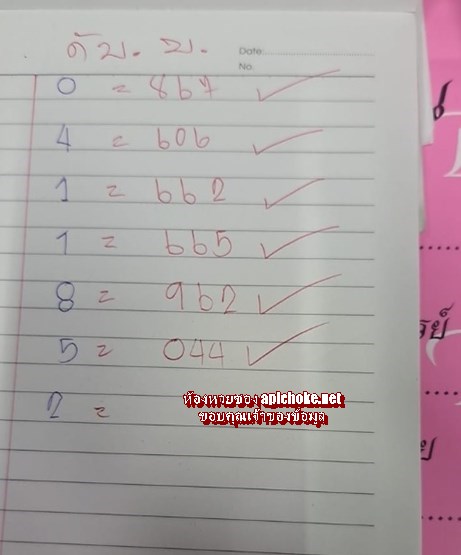 ดับ. บ.
Date:
No.
0 = 867 ✓
4 = 606 ✓
1 = 662 ✓
1 = 665 ✓
8 = 962 ✓
5 = 044 ✓
2 =
ห้องหวยซอง apichoke.net
ขอบคุณเจ้าของข้อมูล